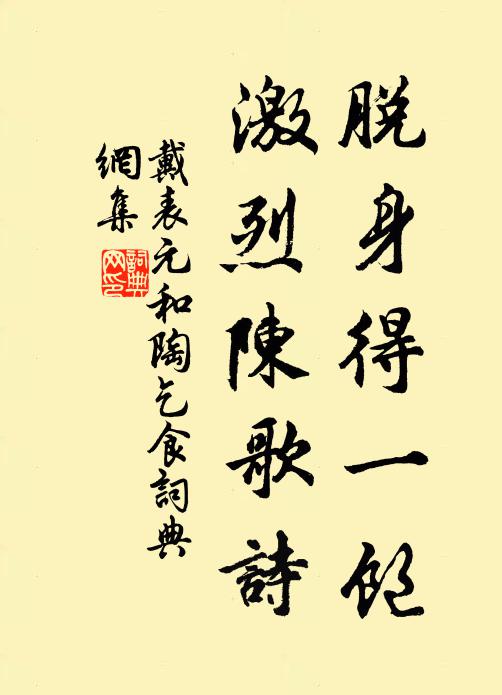 脱身得一飽
激烈陳歌詩
戴表元和陶乞食詞典
網集
詞典
网印